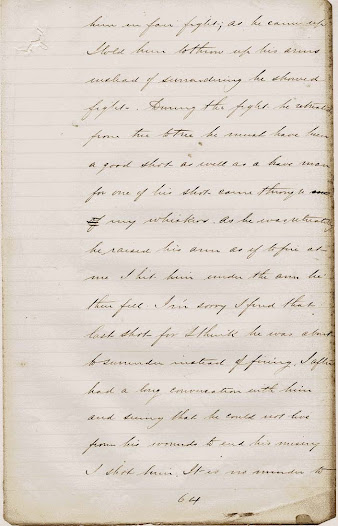 him in fair fight, as he came up
I told him to throw up his arms
instead of surrendering he showed
fight. During the fight he retreated
from tree to tree he must have been
a good shot as well as a brave man
for one of his shot came through
of my whiskers. As he was retreating
he raised his arm as if to fire at
me I hit him under the arm he
then fell. I'm sorry I fired that
last shot for I think he was about
to surrender instead of firing. I after
had a long conversation with him
and seeing that he could not live
from his wounds to end his misery
I shot him. It is no murder to
64